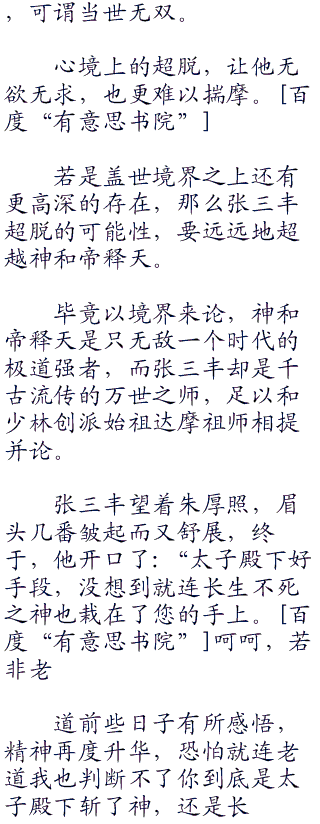 ，可谓当世无双。
心境上的超脱，让他无
欲无求，也更难以揣摩。[百
度“有意思书院”]
若是盖世境界之上还有
更高深的存在，那么张三丰
超脱的可能性，要远远地超
越神和帝释天。
毕竟以境界来论，神和
帝释天是只无敌一个时代的
极道强者，而张三丰却是千
古流传的万世之师，足以和
少林创派始祖达摩祖师相提
并论。
张三丰望着朱厚照，眉
头几番皱起而又舒展，终
于，他开口了：“太子殿下好
手段，没想到就连长生不死
之神也栽在了您的手上。[百
度“有意思书院”]呵呵，若
非老
道前些日子有所感悟，
精神再度升华，恐怕就连老
道我也判断不了你到底是太
子殿下斩了神，还是长